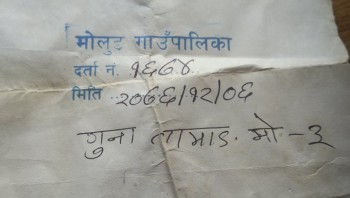 मोलुङ गाउँपालिका
दर्ता नं. १६७४
मिति २०७६/१२/०६
गुना तामाङ. मो.-३